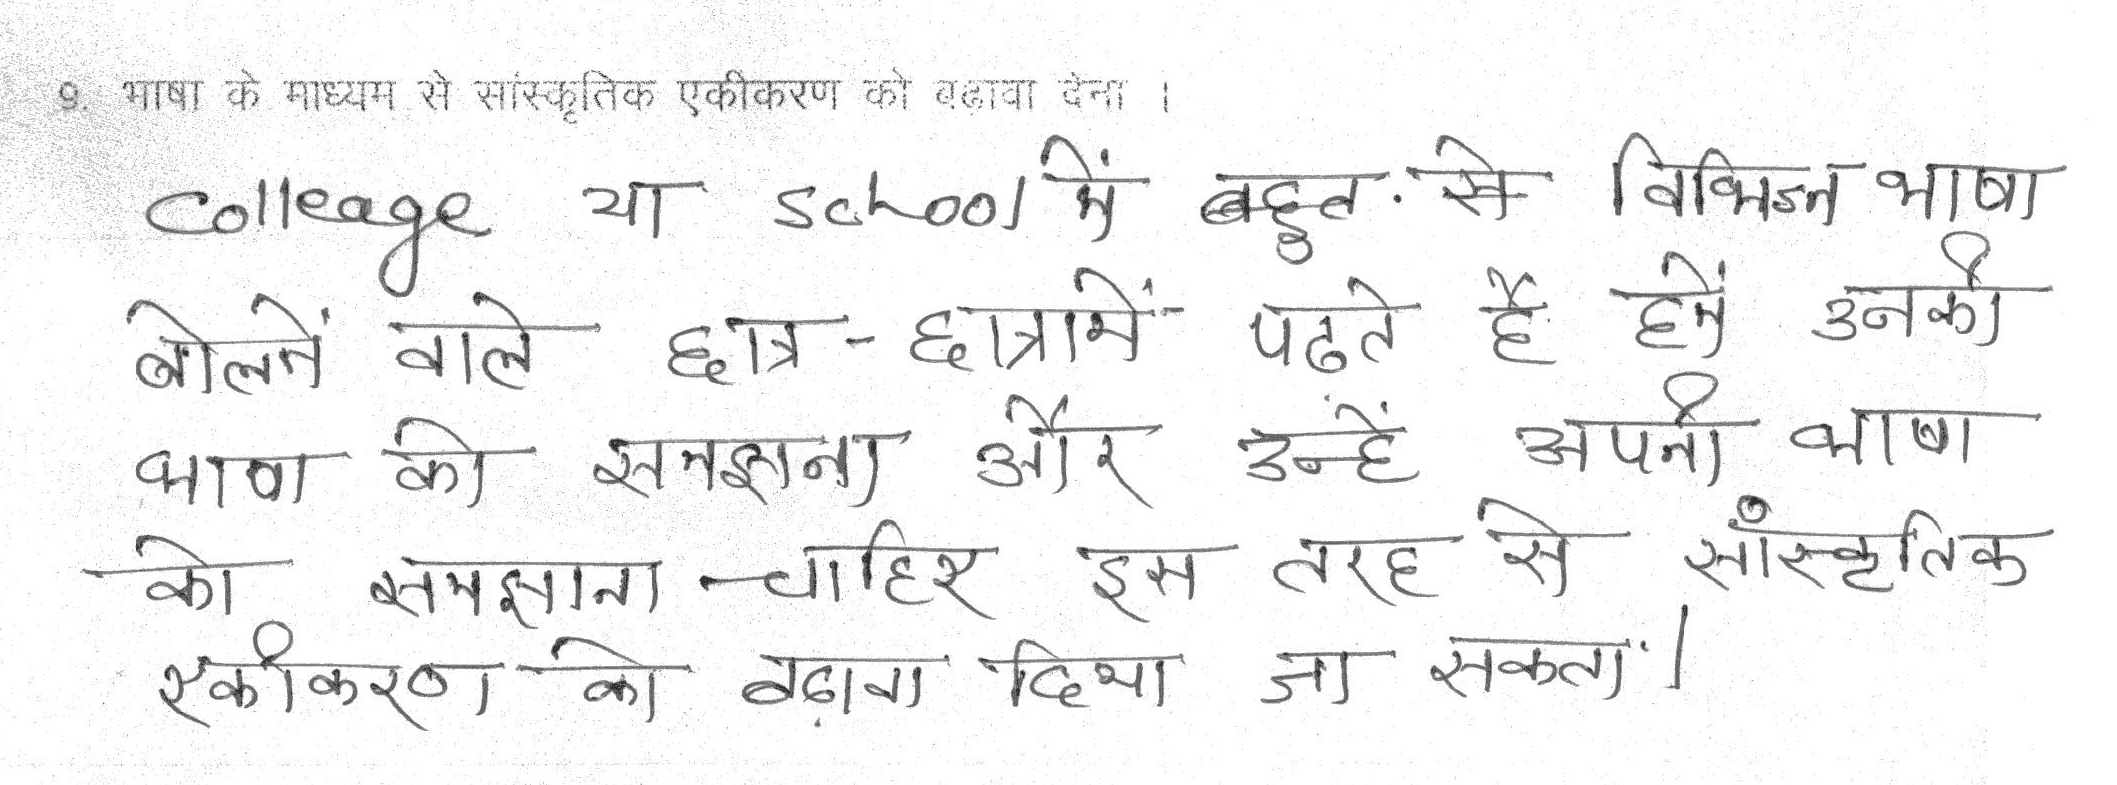 9. भाषा के माध्यम से सांस्कृतिक एकीकरण को बढ़ावा देना ।
Colleage या School में बहुत से विभिन्न भाषा
बोलनें वाले छात्र - छात्रामें पढते है हमें उनकी
भाषा को समझना और उन्हें अपनी भाषा
को समझाना चाहिए इस तरह से साँस्कृतिक
एकीकरण को बढ़ावा दिया जा सकता।